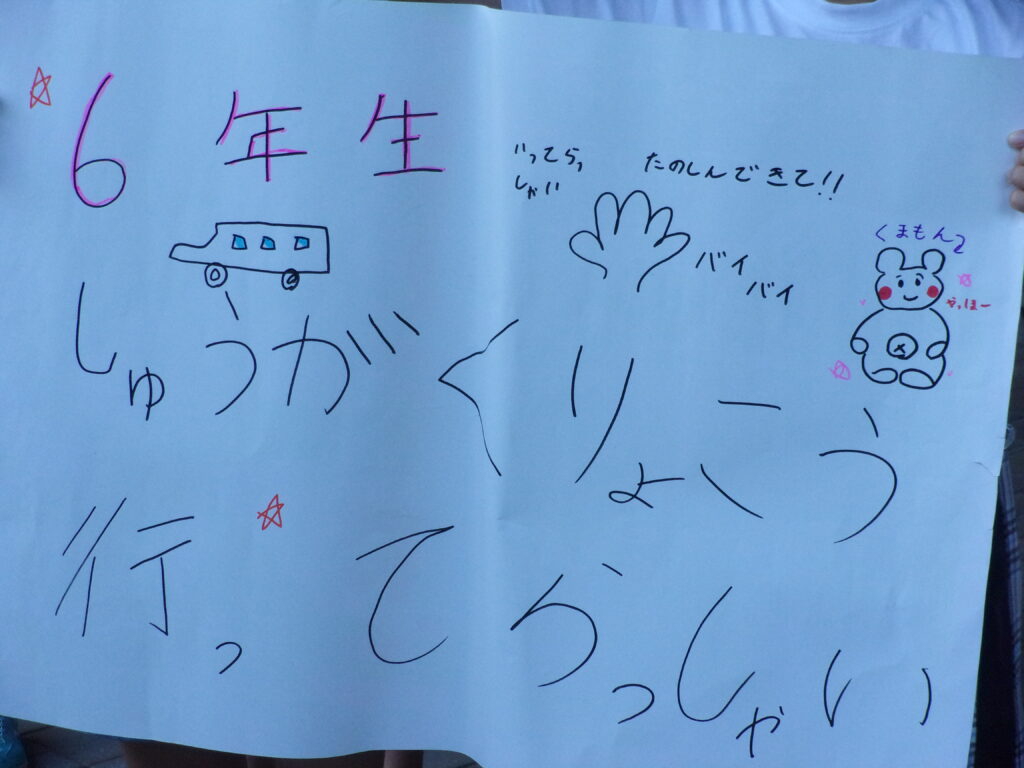 6年生
いってらっ
しゃい
たのしんできて!!
バイ
バイ
くまもん
やっほー
しゅうがくりょこう
行ってらっしゃい